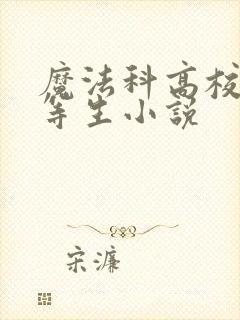 魔法科高校
等生小説
宋濂